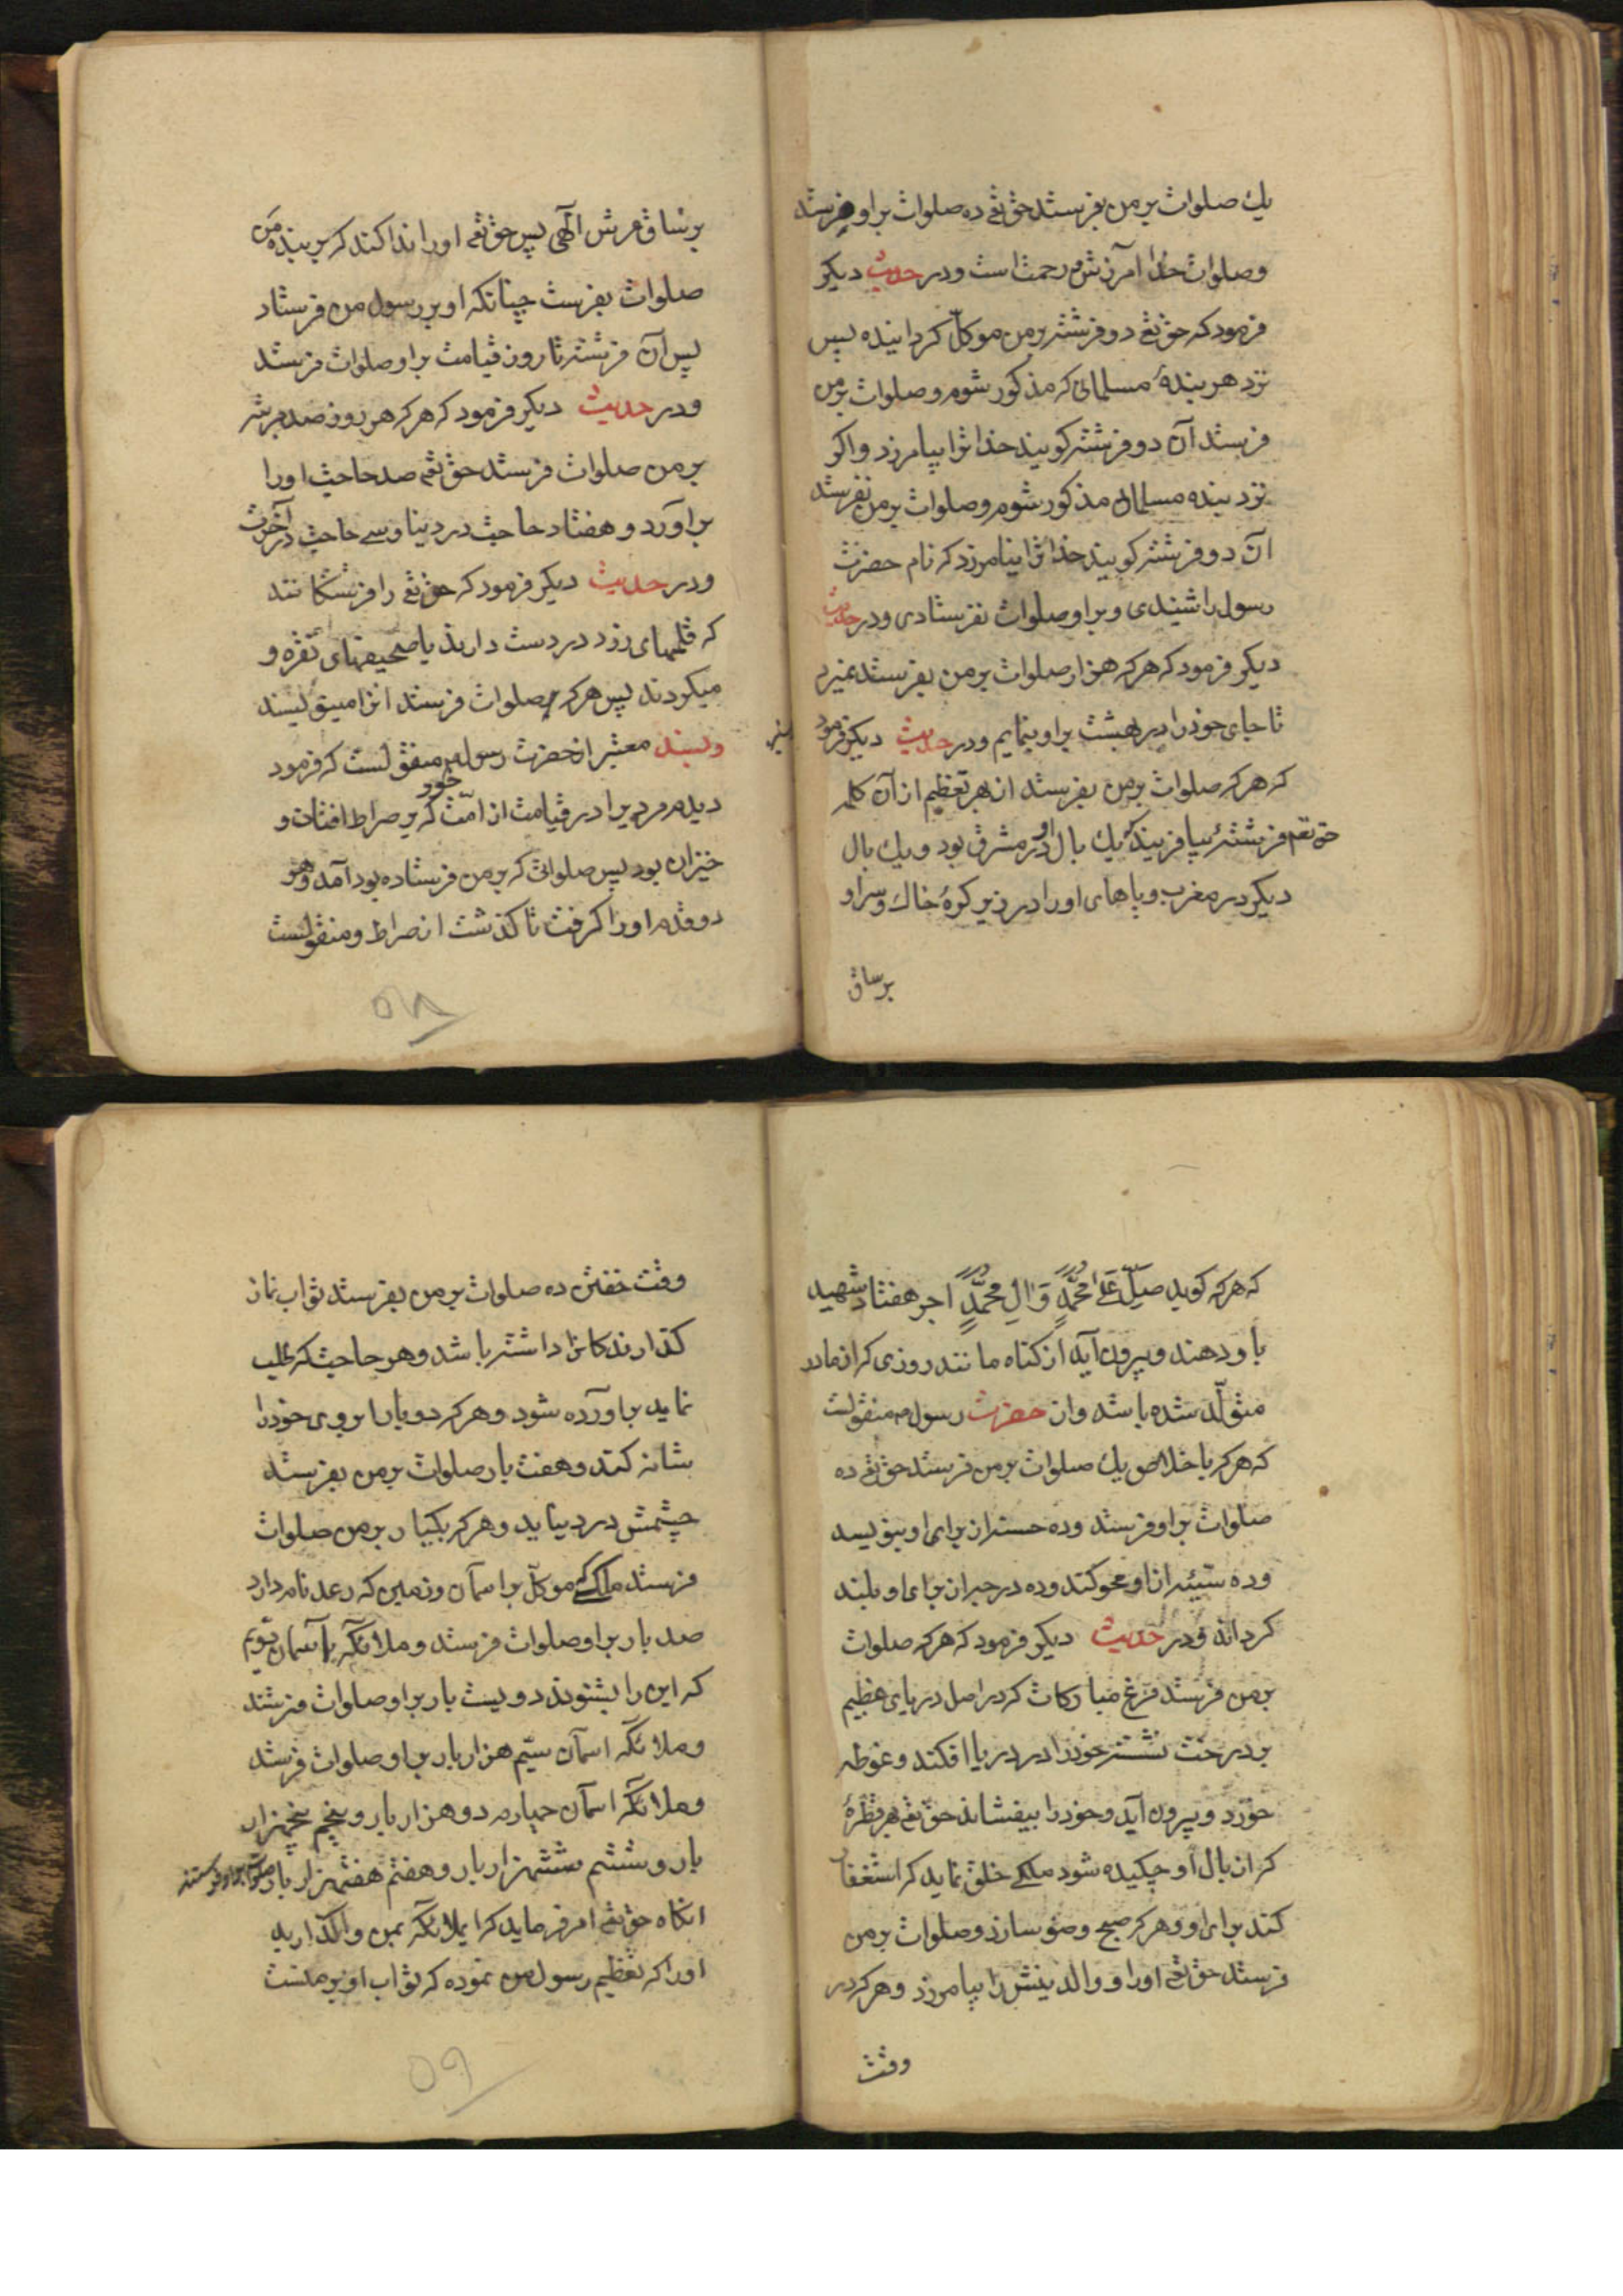 یك صلوات بر من بفرستد حق تع ده صلوات بر او فرستد
و صلوات خدا آمرزش و رحمت است و در حدیث دیکر
فرمود که حق تع دو فرشته بر من موکل کردانیده پس
نزد هر بندهٔ مسلمانی که مذکور شوم و صلوات بر من
فرستد آن دو فرشته کویند خدا ترا بیامرزد و اکر
نزد بنده مسلمانی مذکور شوم و صلوات بر من نفرستد
آن دو فرشته کویند خدا ترا نیامرزد که نام حضرت
رسول را شنیدی و بر او صلوات نفرستادی و در حدیث
دیکر فرمود که هر که هزار صلوات بر من بفرستد نمیرد
تا جای خود را در بهشت بر او بنمایم و در حدیث دیکر فرمود
که هر که صلوات بر من بفرستد از بهر تعظیم از آن کلمه
حق تعم فرشتهٔ بیافریند که یك بال او در مشرق بود و یك بال
دیکر در مغرب و پاهای او را در زیر کوهٔ خاك و سر او
بر ساق
بر ساق عرش الهی پس حق تع او را ندا کند که بر بنده من
صلوات بفرست چنانکه او بر رسول من فرستاد
پس آن فرشته تا روز قیامت بر او صلوات فرستد
و در حدیث دیکر فرمود که هر که هر روز صد مرتبه
بر من صلوات فرستد حق تعم صد حاجت او را
بر آورد و هفتاد حاجت در دنیا و سی حاجت در آخرت
و در حدیث دیکر فرمود که حق تع را فرشتکانند
که قلمهای زرد در دست دارند با صحیفهای نقره و
میکردند پس هر که صلوات فرستد انرا مینویسند
و بسند معتبر از حضرت رسول منقولست که فرمود
دیدم مردیرا در قیامت از امّت خود که بر صراط افتان و
خیزان بود پس صلواتی که بر من فرستاده بود آمد و هر
دو قدم او را کرفت تا کذشت از صراط و منقولست
۵۸
که هر که کوید صلّ علی محمّدٍ و ال محمّدٍ اجر هفتاد شهید
باو دهند و بیرون آید از کناه مانند روزی که از مادر
متولّد شده باشد و از حضرت رسول م منقولست
که هر که باخلاص یك صلوات بر من فرستد حق تع ده
صلوات بر او فرستد و ده حسنه از برای او بنویسد
و ده سیّئه از او محو کند و ده درجه از برای او بلند
کرداند و در حدیث دیکر فرمود که هر که صلوات
بر من فرستد مرغ مبارکات که در اصل دریای عظیم
بر درخت نشسته خود را در دریا افکند و غوطه
خورد و بیرون آید و خود را بیفشاند حق تع بهر قطرهٔ
که از بال او چکیده شود ملکی خلق نماید که استغفار
کند برای او و هر که صبح وضو سازد و صلوات بر من
فرستد حق تع او را و والدینش را بیامرزد و هر که در
وقت
وقت خفتن ده صلوات بر من بفرستد ثواب نماز
کذارندکانرا داشته باشد و هر حاجت که طلب
نماید بر آورده شود و هر که دو بار ابروی خود را
شانه کند و هفت بار صلوات بر من بفرستد
چشمش درد نیاید و هر که یکبار بر من صلوات
فرستد ملکی موکل بر اسمان و زمین که رعد نام دارد
صد بار بر او صلوات فرستد و ملائکه آسمان دویم
که این را بشنوند دویست بار بر او صلوات فرستند
و ملائکه اسمان سیّم هزار بار بر او صلوات فرستد
و ملائکه اسمان چهارم دو هزار بار و پنجم پنجهزار
بار و ششم ششهزار بار و هفتم هفتهزار بار صلوات بر او فرستند
انکاه حق تع امر فرماید که ای ملائکه بمن واکذارید
او را که تعظیم رسول من نموده که ثواب او بر منست
۵۹